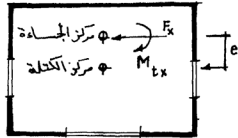 مركز الجساءة
Fx
Mtx
e
مركز الكتلة